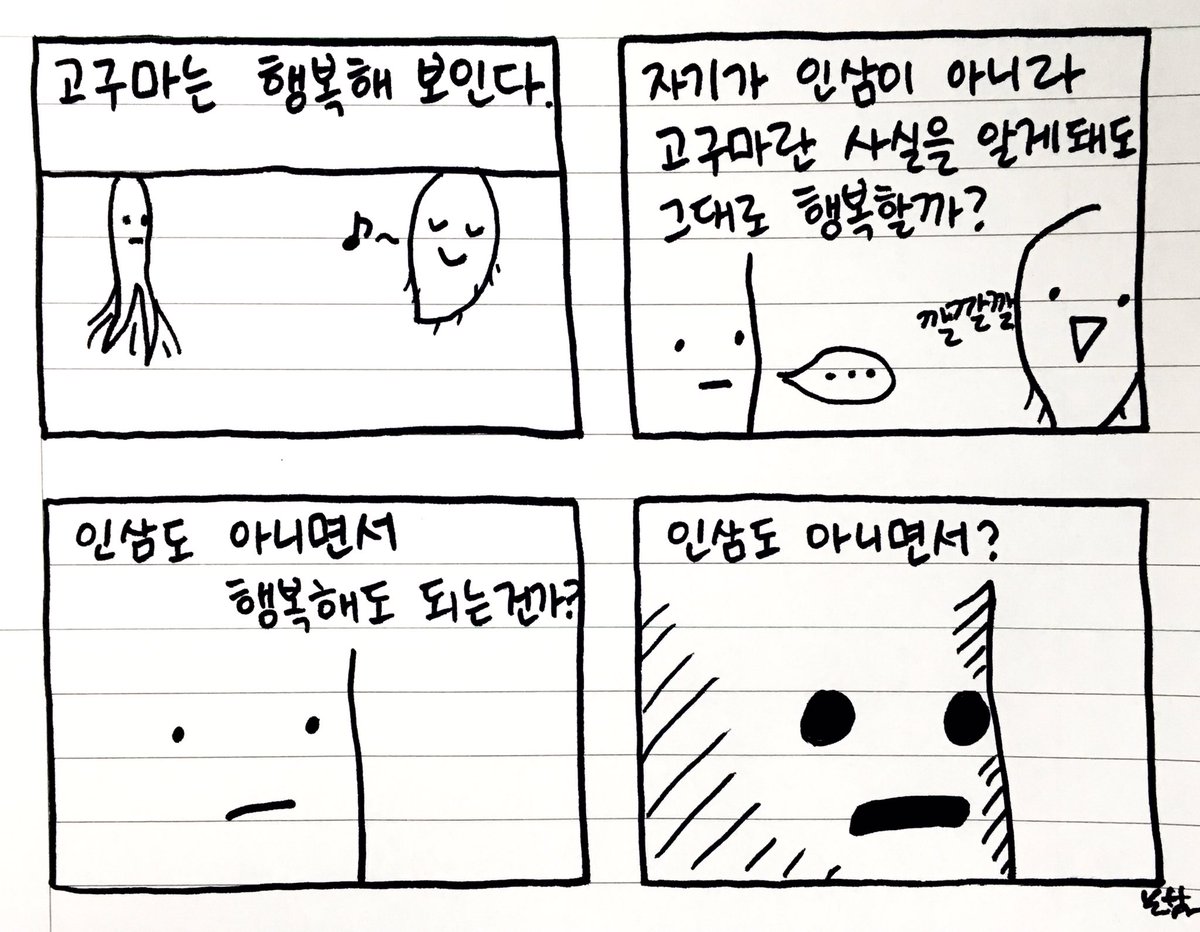 고구마는 행복해 보인다.
자기가 인삼이 아니라
고구마란 사실을 알게돼도
그대로 행복할까?
깔깔깔
...
인삼도 아니면서
행복해도 되는건가?
인삼도 아니면서?